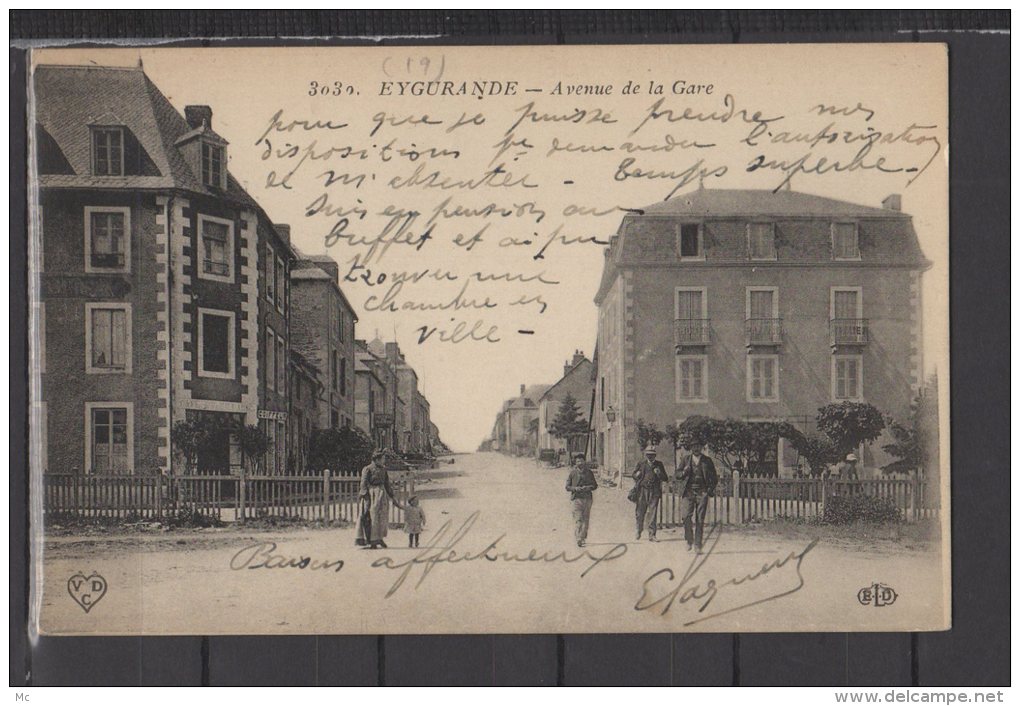 (19)
3030. EYGURANDE — Avenue de la Gare
pour que je puisse prendre mes
dispositions je demander l'autorisation
de m'absenter - temps superbe -
suis en pension au
buffet et ai pu
trouver une
chambre en
ville -
COIFFEUR
Baisers affectueux
VDC
ELD
Mc
www.delcampe.net